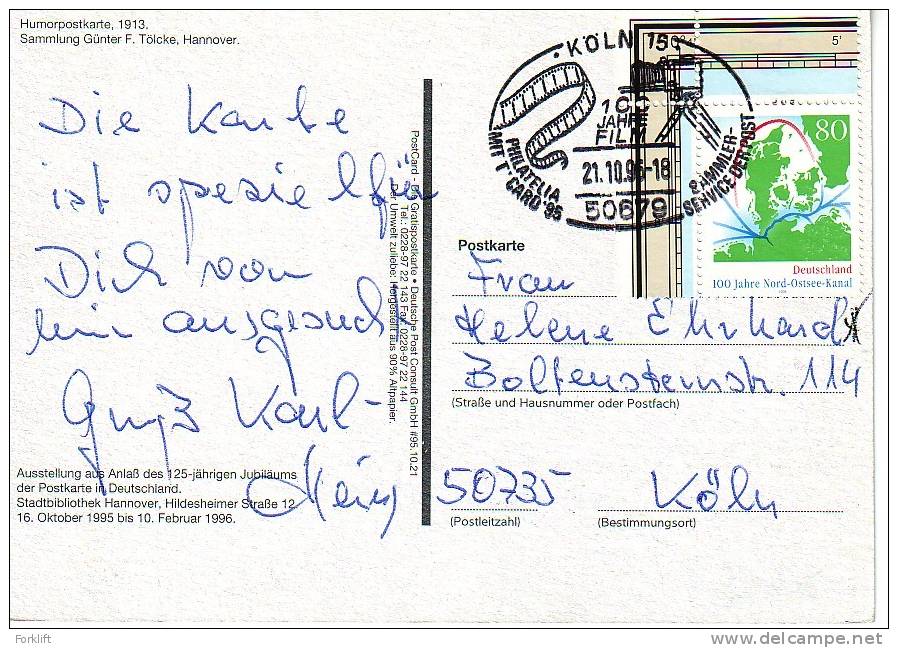 Humorpostkarte, 1913.
Sammlung Günter F. Tölcke, Hannover.
Die Karte
ist speziell für
Dich von
mir ausgesucht
Gruß Karl-
Heinz
Ausstellung aus Anlaß des 125-jährigen Jubiläums
der Postkarte in Deutschland.
Stadtbibliothek Hannover, Hildesheimer Straße 12
16. Oktober 1995 bis 10. Februar 1996.
PostCard - Die Gratispostkarte • Deutsche Post Consult GmbH #95.10.21
Tel.: 0228-97 22 143 Fax: 0228-97 22 144
Der Umwelt zuliebe: Hergestellt aus 90% Altpapier.
KÖLN 15
100
JAHRE
FILM
21.10.95-18
50679
PHILATELIA
MIT T'CARD '95
SAMMLER-
SERVICE DER POST
5'
80
Deutschland
100 Jahre Nord-Ostsee-Kanal
Postkarte
Frau
Helene Ehrhardt
Boltensternstr. 114
(Straße und Hausnummer oder Postfach)
50735 Köln
(Postleitzahl) (Bestimmungsort)
Forklift
www.delcampe.net